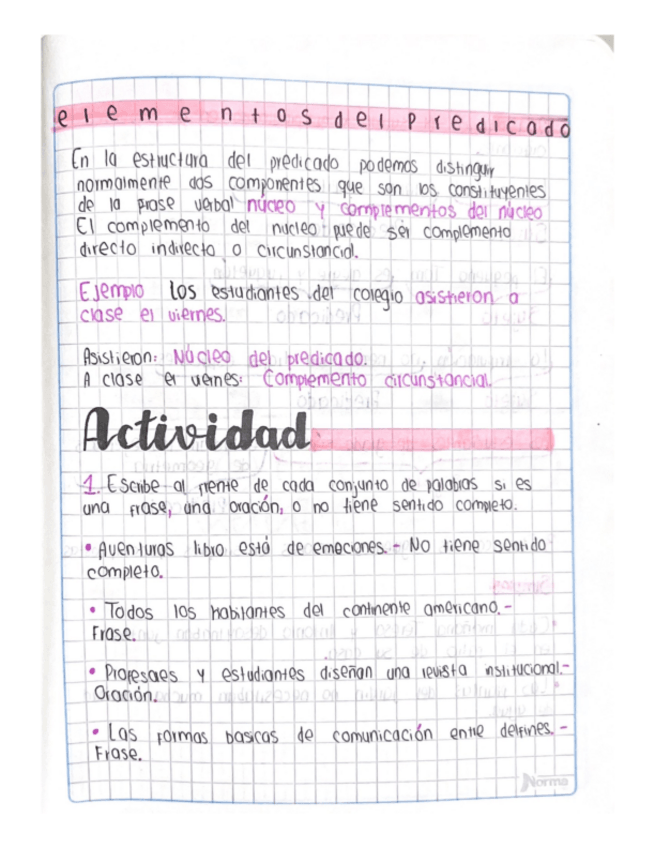 elementos del predicado
En la estructura del predicado podemos distinguir
normalmente dos componentes que son los constituyentes
de la frase verbal núcleo y complementos del núcleo
El complemento del nucleo puede ser complemento
directo indirecto o circunstancial.
Ejemplo los estudiantes del colegio asistieron a
clase el viernes.
Asistieron: Núcleo del predicado.
A clase el vernes: Complemento circunstancial
Actividad
1. Escribe al frente de cada conjunto de palabras si es
una frase, una oración, o no tiene sentido completo.
• Aventuras libro está de emociones. - No tiene sentido
completo.
• Todos los habitantes del continente americano. -
Frase.
• Profesores y estudiantes diseñan una revista institucional. -
Oración.
• Las formas basicas de comunicación entre delfines. -
Frase.
Norma